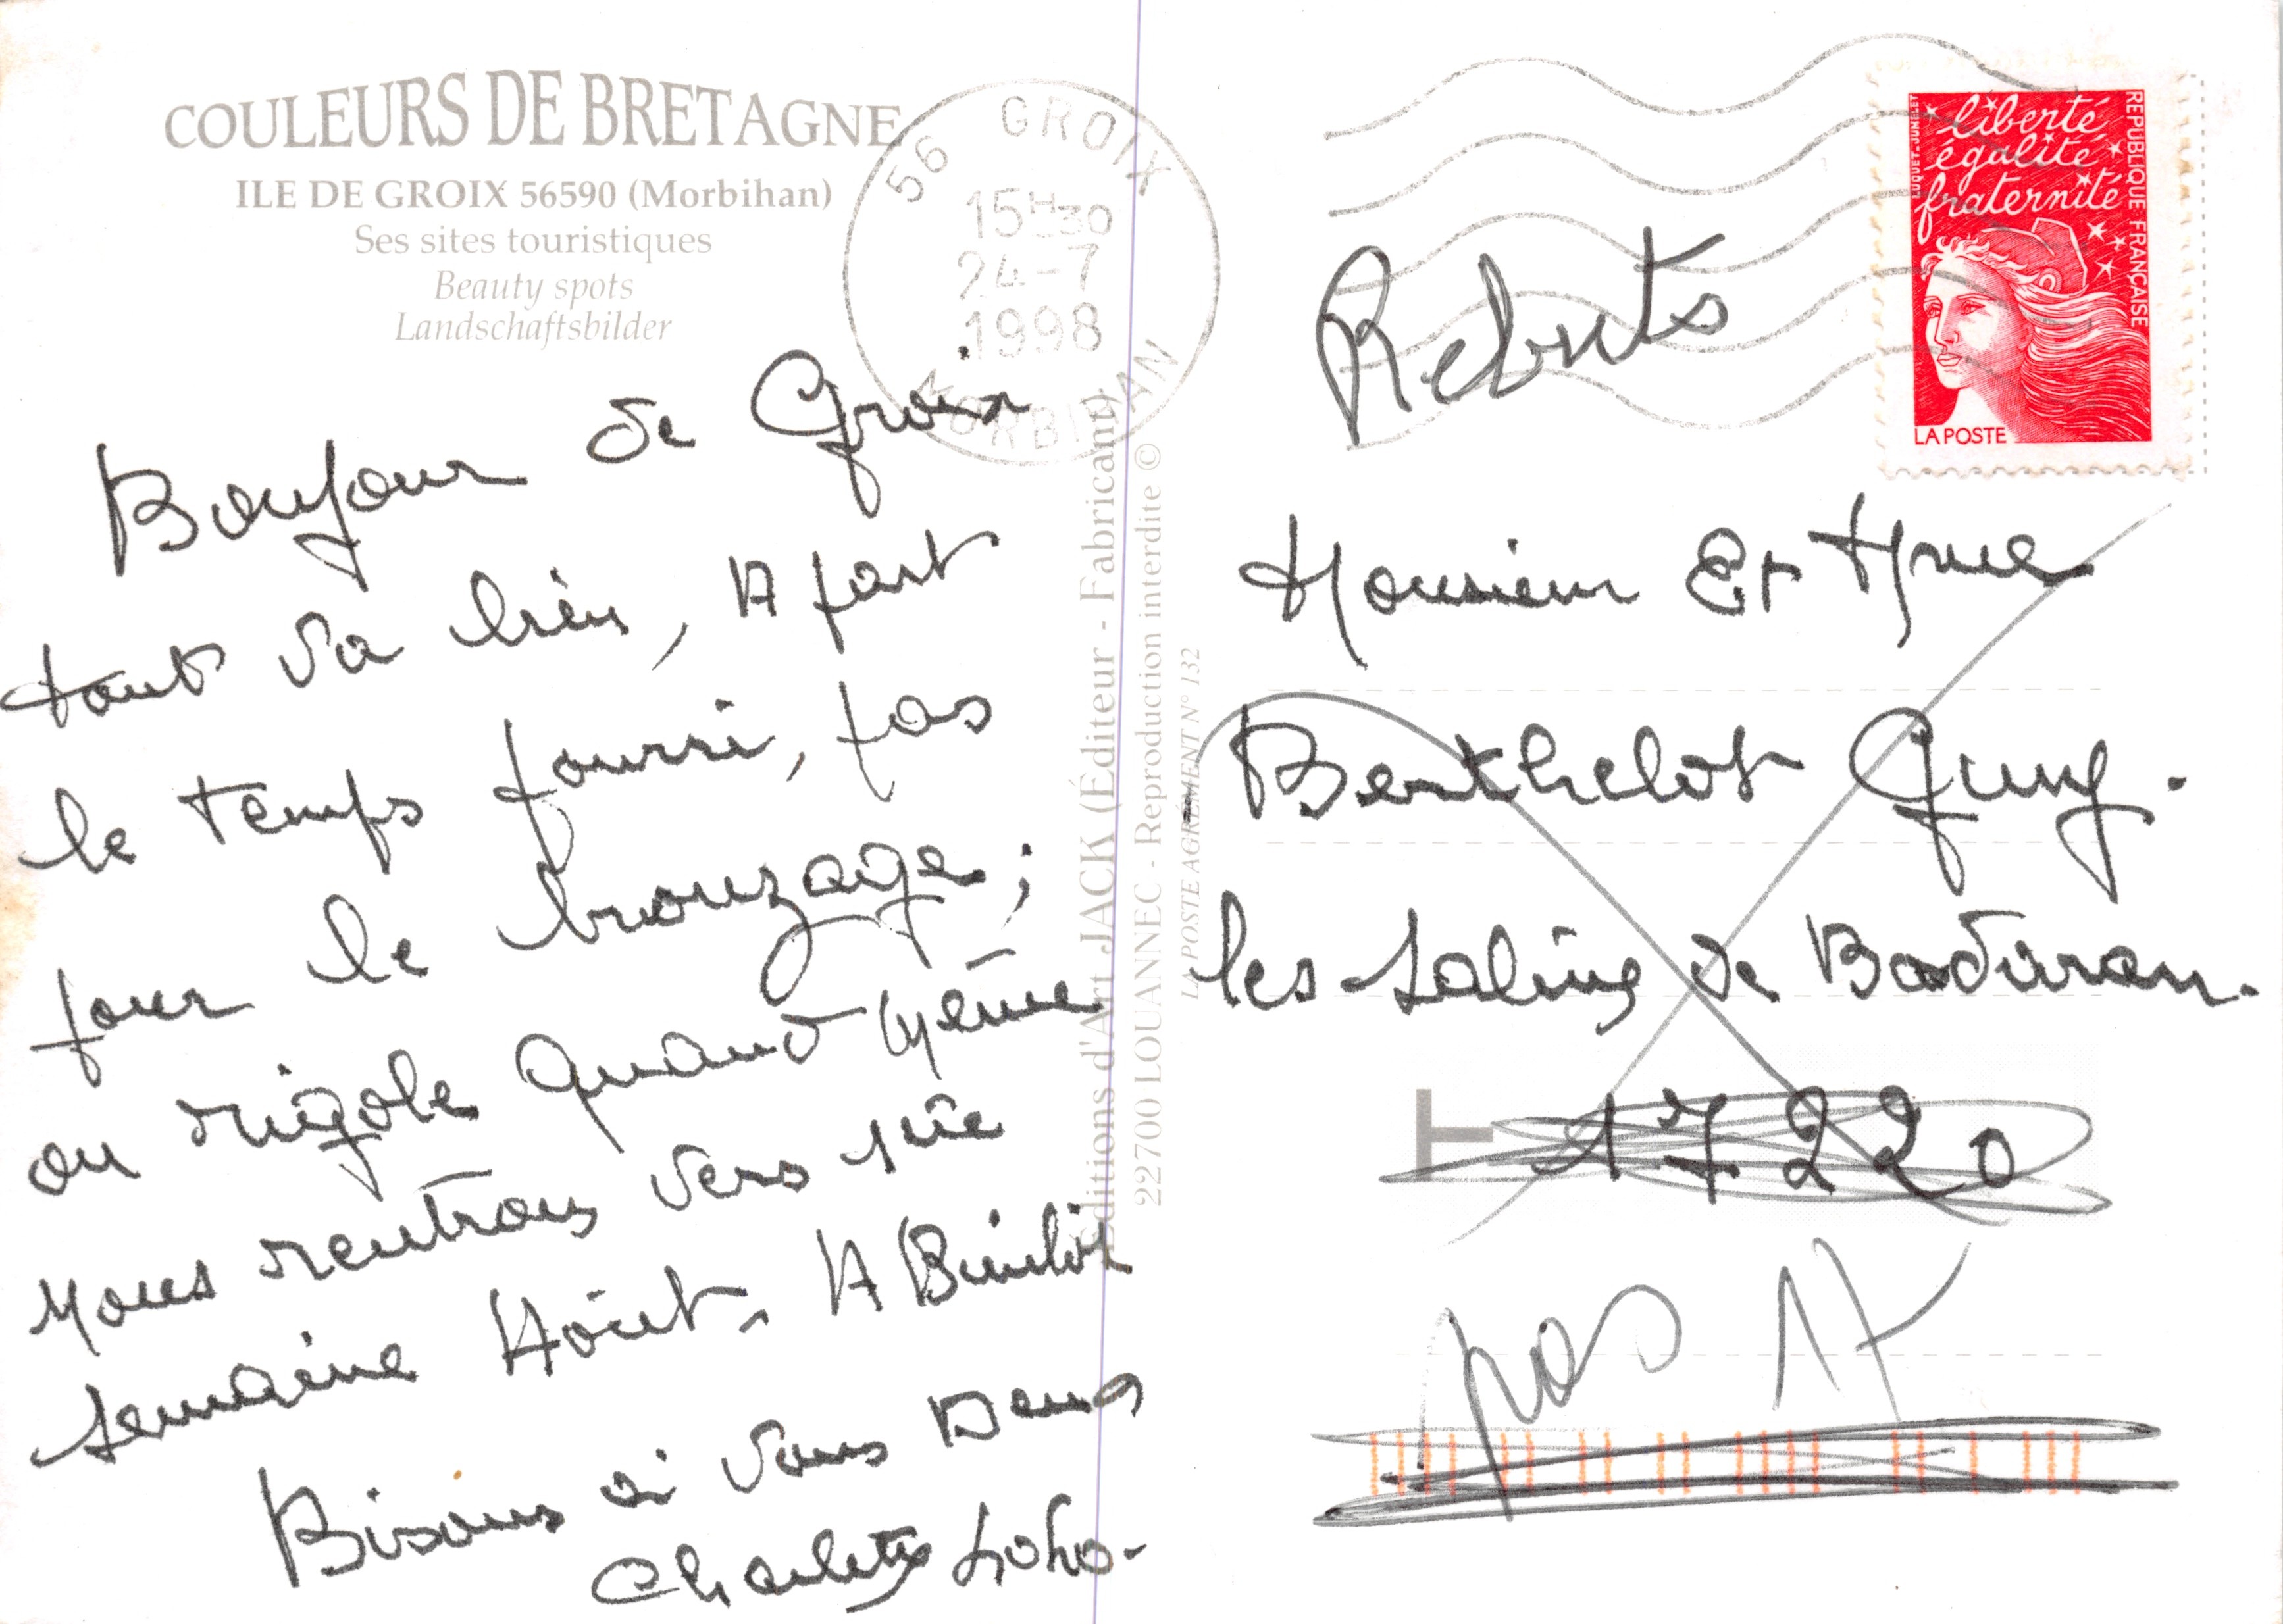 COULEURS DE BRETAGNE
ILE DE GROIX 56590 (Morbihan)
Ses sites touristiques
Beauty spots
Landschaftsbilder
56 GROIX
15H30
24-7
1998
MORBIHAN
Bonjour de Groix
tout va bien, A part
le temps pourri, pas
pour le bronzage;
on rigole quand même
Nous rentrons vers 1ière
semaine Août. A Bientôt
Bisous à vous Deux
Charlotte
Editions d'Art JACK (Éditeur - Fabricant)
22700 LOUANNEC - Reproduction interdite ©
LA POSTE AGRÉMENT N° 132
liberté
égalité
fraternité
REPUBLIQUE FRANÇAISE
LUQUET-JUMELET
LA POSTE
Rebuts
Monsieur Et Mme
Berthelot Guy.
les salines de
17220
pas 17